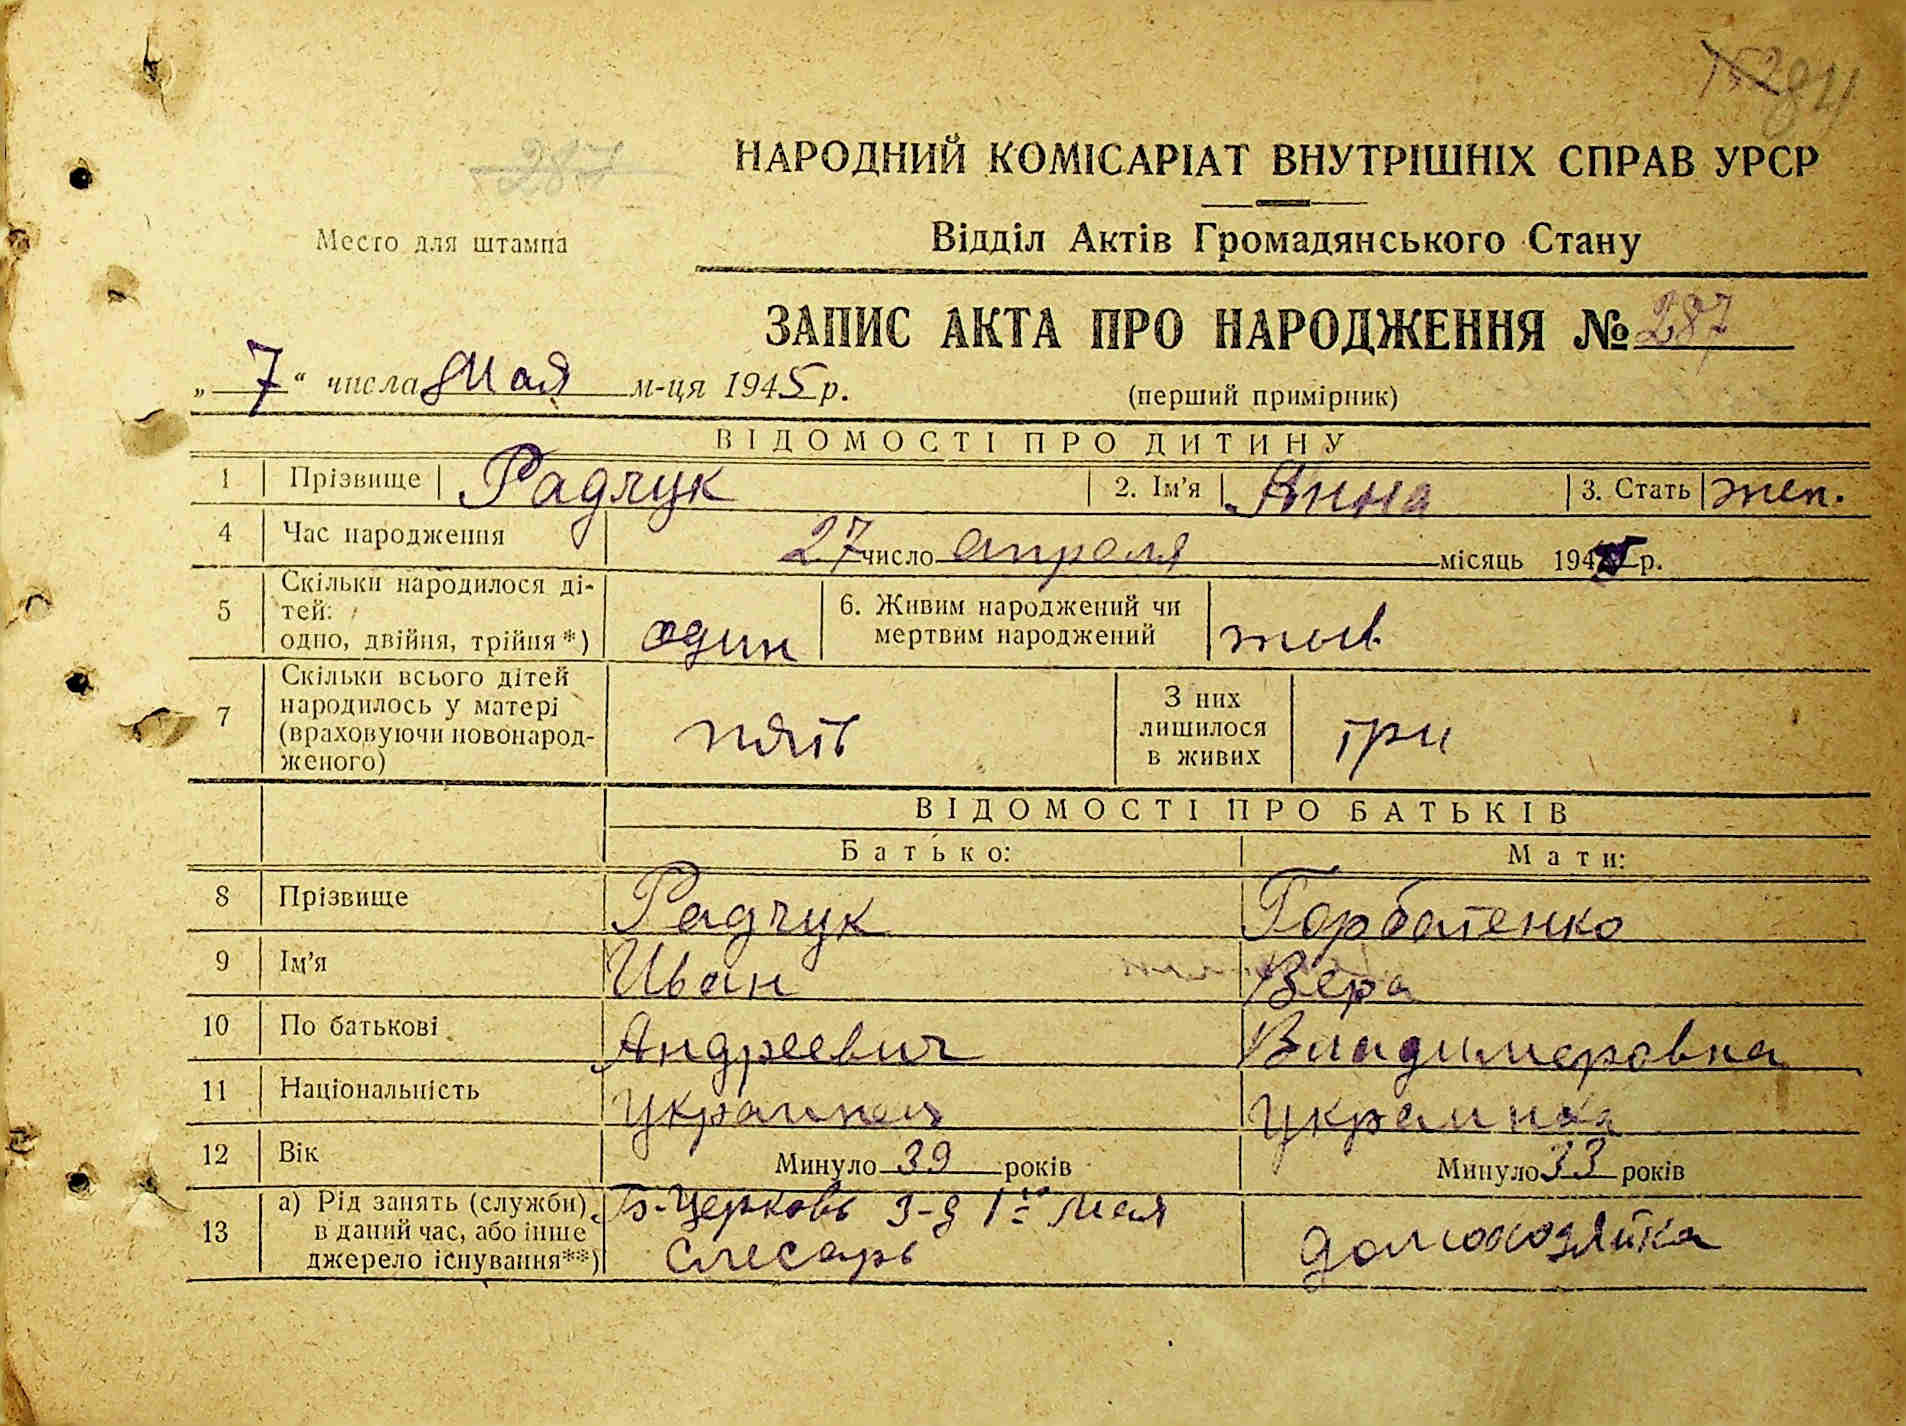 284
287
НАРОДНИЙ КОМІСАРІАТ ВНУТРІШНІХ СПРАВ УРСР
Место для штампа
Відділ Актів Громадянського Стану
ЗАПИС АКТА ПРО НАРОДЖЕННЯ № 287
„ 7 “ числа Мая м-ця 1945 р.
(перший примірник)
ВІДОМОСТІ ПРО ДИТИНУ
1 Прізвище Радчук 2. Ім'я Анна 3. Стать жен.
4 Час народження 27 число апреля місяць 1945 р.
5 Скільки народилося ді-
тей:
одно, двійня, трійня*) один 6. Живим народжений чи
мертвим народжений жив
7 Скільки всього дітей
народилось у матері
(враховуючи новонарод-
женого) пять З них
лишилося
в живих три
ВІДОМОСТІ ПРО БАТЬКІВ
Батько: Мати:
8 Прізвище Радчук Горбатенко
9 Ім'я Иван Вера
10 По батькові Андреевич Владимеровна
11 Національність Украинец Украинка
12 Вік Минуло 39 років Минуло 33 років
13 а) Рід занять (служби)
в даний час, або інше
джерело існування**) Б-Церковь з-д 1го Мая
Слесарь домохозяйка